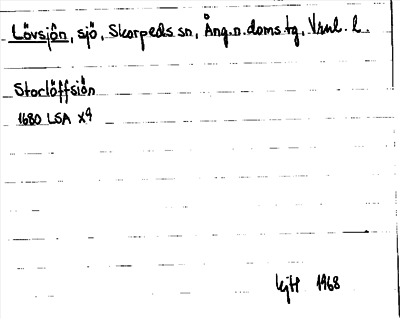 Lövsjön, sjö, Skorpeds sn, Ång.n.doms.tg, Vnl. l.
Stoclöffsiön
1680 LSA X9
1968